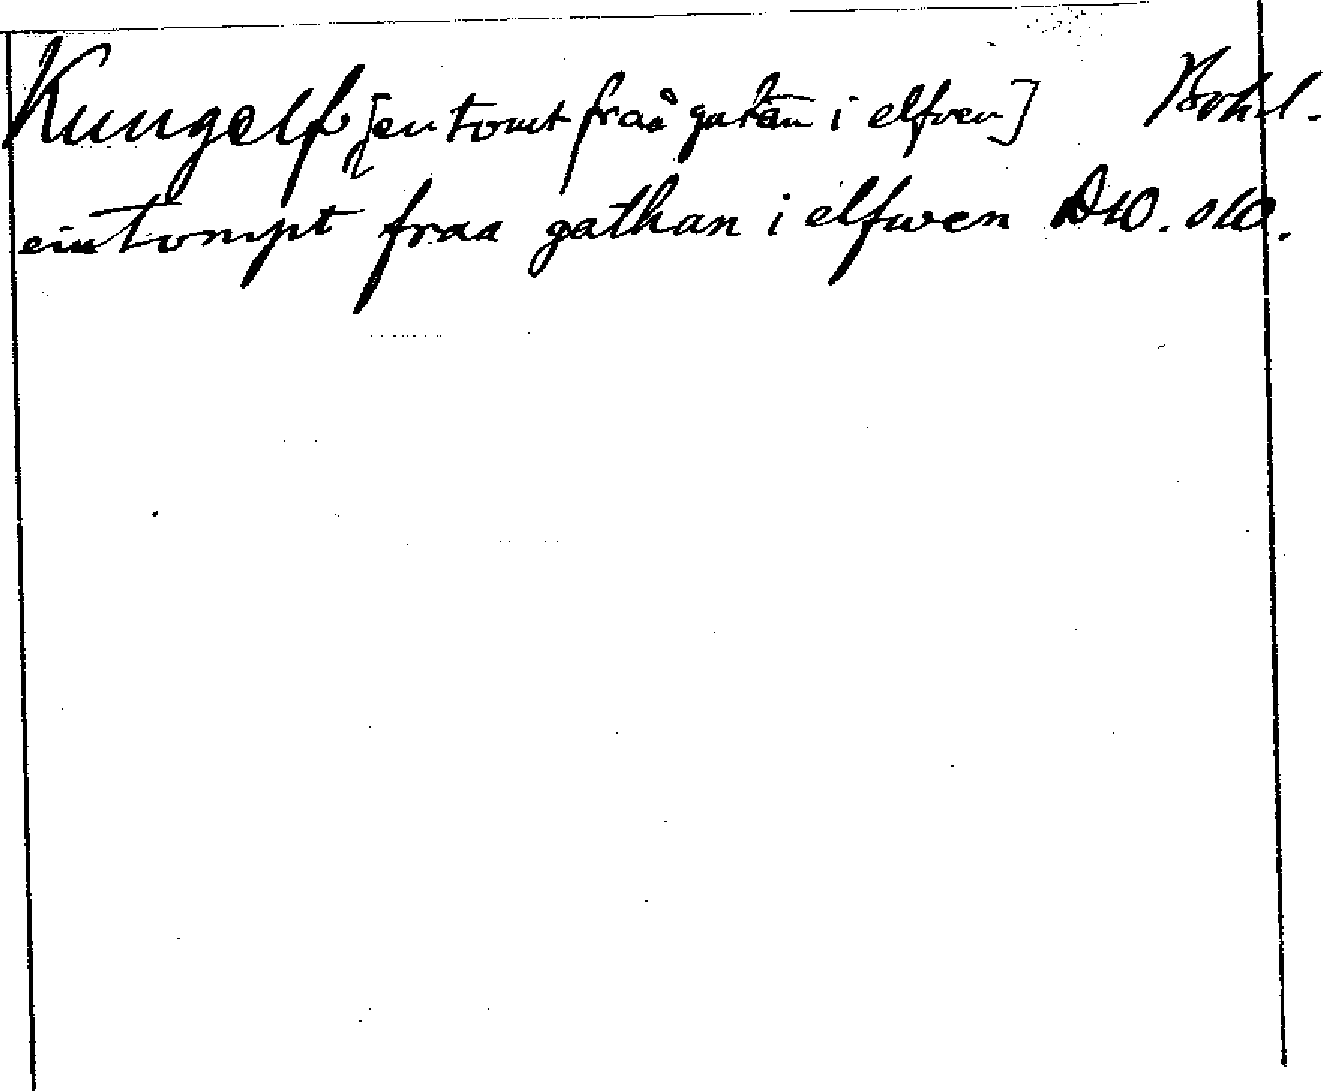 Kungelf [en tomt fraå gatan i elfven] Bohl.
ein tompt fraa gathan i elfwen